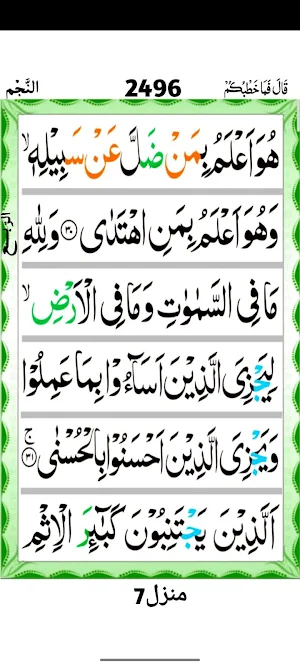 قَالَ فَمَا خَطْبُكُمْ 2496 النَّجْم
هُوَ اَعْلَمُ بِمَنْ ضَلَّ عَنْ سَبِيْلِهٖ ۙ
وَهُوَ اَعْلَمُ بِمَنِ اهْتَدٰى ﴿۳۰﴾ وَلِلّٰهِ
مَا فِى السَّمٰوٰتِ وَمَا فِى الْاَرْضِ ۙ
لِيَجْزِىَ الَّذِيْنَ اَسَآءُوْا بِمَا عَمِلُوْا
وَيَجْزِىَ الَّذِيْنَ اَحْسَنُوْا بِالْحُسْنٰى ۚ ﴿۳۱﴾
اَلَّذِيْنَ يَجْتَنِبُوْنَ كَبٰٓئِرَ الْاِثْمِ
منزل 7